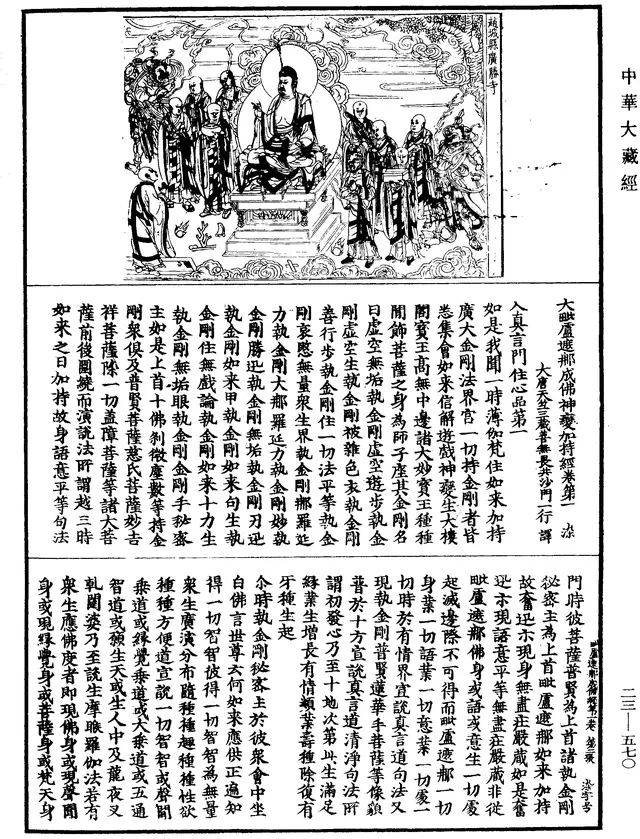 中華大藏經
趙城縣廣勝寺
大毗盧遮那成佛神變加持經卷第一 染
大唐天竺三藏善無畏共沙門一行譯
入真言門住心品第一
如是我聞一時薄伽梵住如來加持
廣大金剛法界宮一切持金剛者皆
悉集會如來信解遊戲神變生大樓
閣寶王高無中邊諸大妙寶王種種
間飾菩薩之身為師子座其金剛名
曰虛空無垢執金剛虛空遊步執金
剛虛空生執金剛被雜色衣執金剛
善行步執金剛住一切法平等執金
剛哀愍無量眾生界執金剛那羅延
力執金剛大那羅延力執金剛妙執
金剛勝迅執金剛無垢執金剛刃迅
執金剛如來甲執金剛如來句生執
金剛住無戲論執金剛如來十力生
執金剛無垢眼執金剛金剛手秘密
主如是上首十佛剎微塵數等持金
剛眾俱及普賢菩薩慈氏菩薩妙吉
祥菩薩除一切蓋障菩薩等諸大菩
薩前後圍繞而演說法所謂越三時
如來之日加持故身語意平等句法
門時彼菩薩普賢為上首諸執金剛
秘密主為上首毗盧遮那如來加持
故奮迅示現身無盡莊嚴藏如是奮
迅示現語意平等無盡莊嚴藏非從
毗盧遮那佛身或語或意生一切處
起滅邊際不可得而毗盧遮那一切
身業一切語業一切意業一切處一
切時於有情界宣說真言道句法又
現執金剛普賢蓮華手菩薩等像貌
普於十方宣說真言道清淨句法所
謂初發心乃至十地次第此生滿足
緣業生增長有情類業壽種除復有
牙種生起
尒時執金剛秘密主於彼眾會中坐
白佛言世尊云何如來應供正遍知
得一切智智彼得一切智智為無量
眾生廣演分布隨種種趣種種性欲
種種方便道宣說一切智智或聲聞
乘道或緣覺乘道或大乘道或五通
智道或願生天或生人中及龍夜叉
乹闥婆乃至說生摩睺羅伽法若有
眾生應佛度者即現佛身或現聲聞
身或現緣覺身或菩薩身或梵天身
二三—五七〇